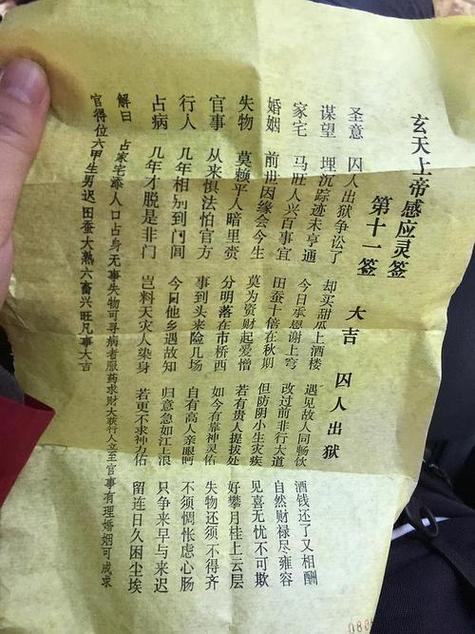 玄天上帝感应灵签
第十一签 大吉 囚人出狱
圣意 囚人出狱争讼了 却买甜瓜上酒楼 遇见故人同畅饮 酒钱还了又相酬
谋望 埋沉踪迹未亨通 今日承恩谢上穹 改过前非行大道 自然财禄尽雍容
家宅 马旺人兴百事宜 田蚕十倍在秋期 但防阴小生灾疾 见喜无忧不可欺
婚姻 前世因缘会今生 莫为资财起爱憎 若有贵人提拔处 好攀月桂上云层
失物 莫赖平人暗里赍 分明落在市桥西 如今有靠神灵佑 失物还须不得齐
官事 从来惧法怕官方 事到头来险几场 自有高人亲眼眄 不须惆怅虑心肠
行人 几年相别到门闾 今日他乡遇故知 归意急如江上浪 只争来早与来迟
占病 几年才脱是非门 岂料天灾人染身 若更不求神力佑 留连日久困尘埃
解曰 占家宅添人口占身无事失物可寻病者服药求财大获行人立至官事有理婚姻可成求
官得位六甲生男迟田蚕大熟六畜兴旺凡事大吉